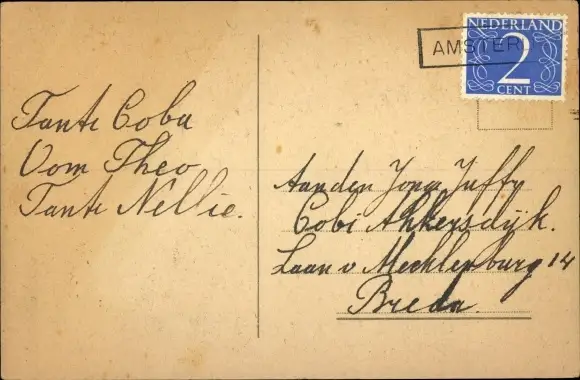 NEDERLAND
2
CENT
AMSTERD
Tante Coba
Oom Theo
Tante Nellie.
Aan den Jong Juffr
Cobi Akkersdijk.
Laan v Mecklenburg 14
Breda.